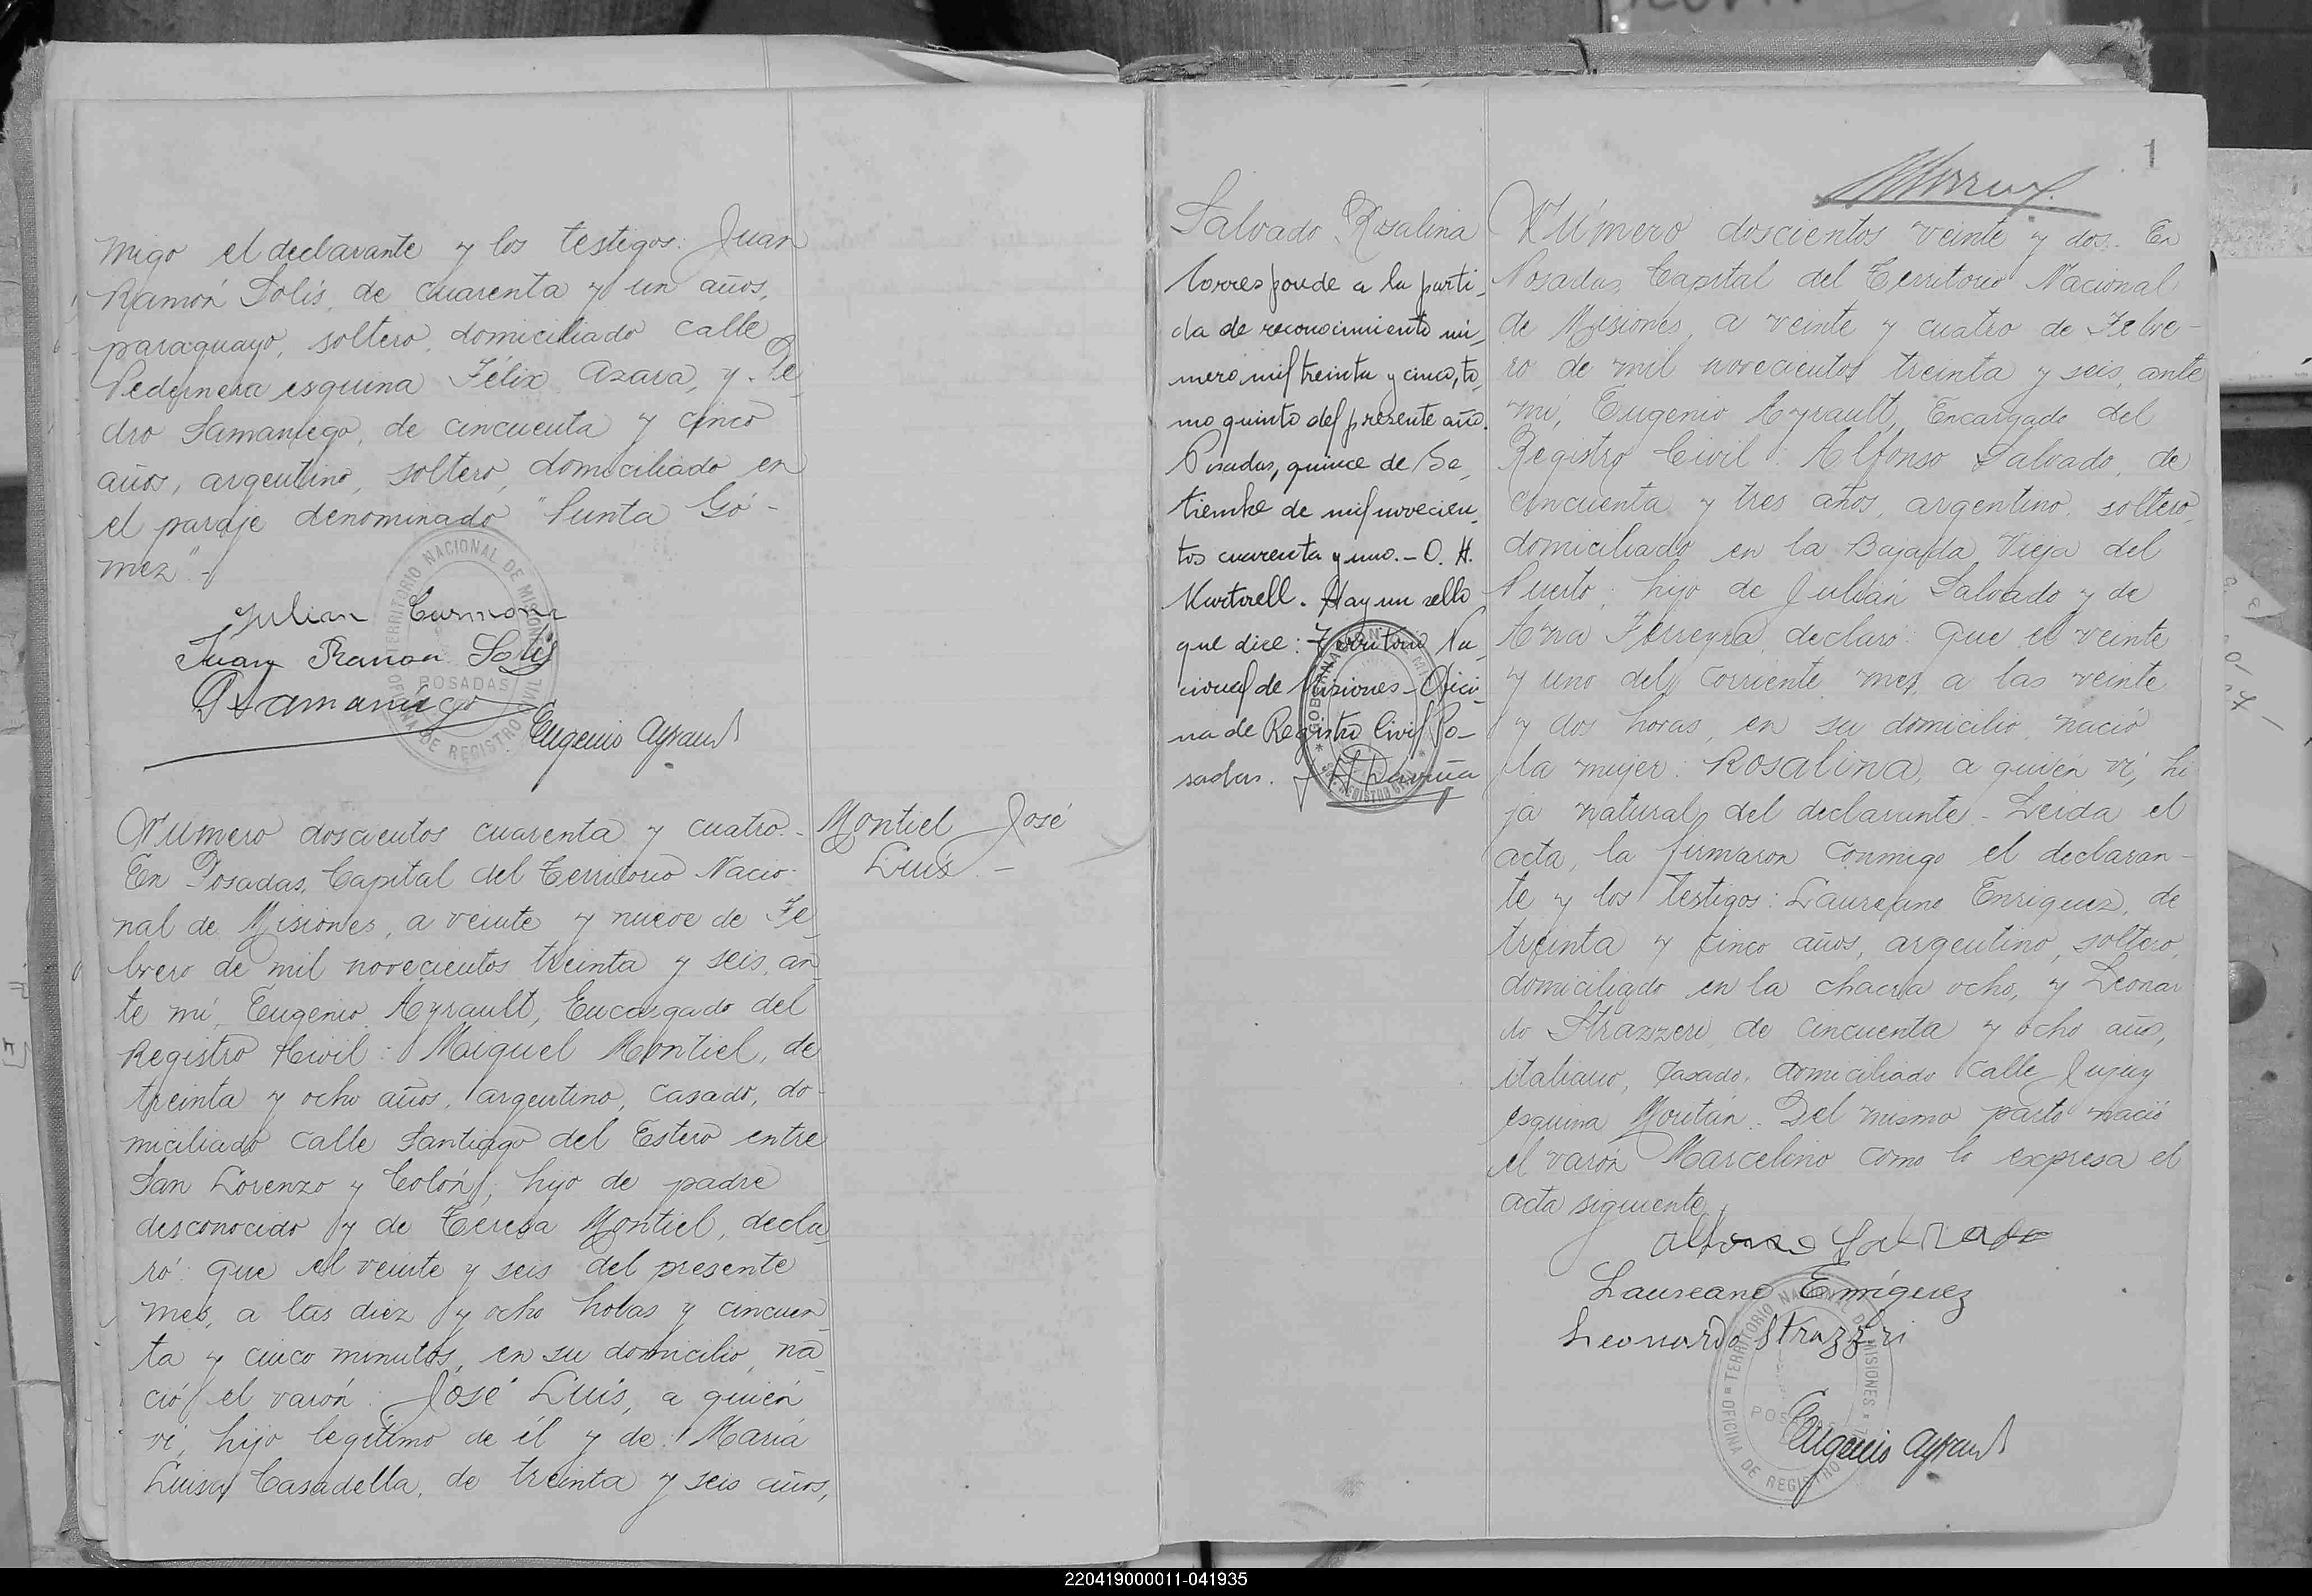 migo el declarante y los testigos: Juan
Ramón Solís, de cuarenta y un años,
paraguayo, soltero, domiciliado calle
Pedernera esquina Félix Azara, y Pe-
dro Samaniego, de cincuenta y cinco
años, argentino, soltero, domiciliado en
el paraje denominado "Punta Gó-
mez".-
Julian Carmona
Juan Ramon Solis
P Samaniego
Eugenio Ayrault
TERRITORIO NACIONAL DE MISIONES
POSADAS
OFICINA DE REGISTRO CIVIL
Número doscientos cuarenta y cuatro.-
En Posadas, Capital del Territorio Nacio-
nal de Misiones, a veinte y nueve de Fe-
brero de mil novecientos treinta y seis, an-
te mí, Eugenio Ayrault, Encargado del
Registro Civil: Miguel Montiel, de
treinta y ocho años, argentino, casado, do-
miciliado calle Santiago del Estero entre
San Lorenzo y Colón, hijo de padre
desconocido y de Teresa Montiel, decla-
ró: que el veinte y seis del presente
mes, a las diez y ocho horas y cincuen-
ta y cinco minutos, en su domicilio, na-
ció el varón: José Luis, a quién
ví, hijo legítimo de él y de: María
Luisa Casadella, de treinta y seis años,
Montiel José
Luis.-
Salvado Rosalina
Corresponde a la parti-
da de reconocimiento nú-
mero mil treinta y cinco, to-
mo quinto del presente año.
Posadas, quince de Se-
tiembre de mil novecien-
tos cuarenta y uno.- O. H.
Martorell. Hay un sello
que dice: Territorio Na-
cional de Misiones- Ofici-
na de Registro Civil Po-
sadas.
1
Número doscientos veinte y dos. En
Posadas, Capital del Territorio Nacional
de Misiones, a veinte y cuatro de Febre-
ro de mil novecientos treinta y seis, ante
mí, Eugenio Ayrault, Encargado del
Registro Civil: Alfonso Salvado, de
cincuenta y tres años, argentino, soltero,
domiciliado en la Bajada Vieja del
Puerto, hijo de Julián Salvado y de
Ana Ferreyra, declaró: que el veinte
y uno del corriente mes, a las veinte
y dos horas, en su domicilio, nació
la mujer: Rosalina, a quien ví, hi
ja natural del declarante.- Leída el
acta, la firmaron conmigo el declaran-
te y los testigos: Laureano Enriquez, de
treinta y cinco años, argentino, soltero,
domiciliado en la chacra ocho, y Leonar
do Strazzeri, de cincuenta y ocho años,
italiano, casado, domiciliado calle Jujuy
esquina Moután. Del mismo parto nació
el varón Marcelino como lo expresa el
acta siguiente.
Alfonso Salvado
Laureano Enríquez
Leonardo Strazzeri
Eugenio Ayrault
TERRITORIO NACIONAL DE MISIONES
POSADAS
OFICINA DE REGISTRO
220419000011-041935